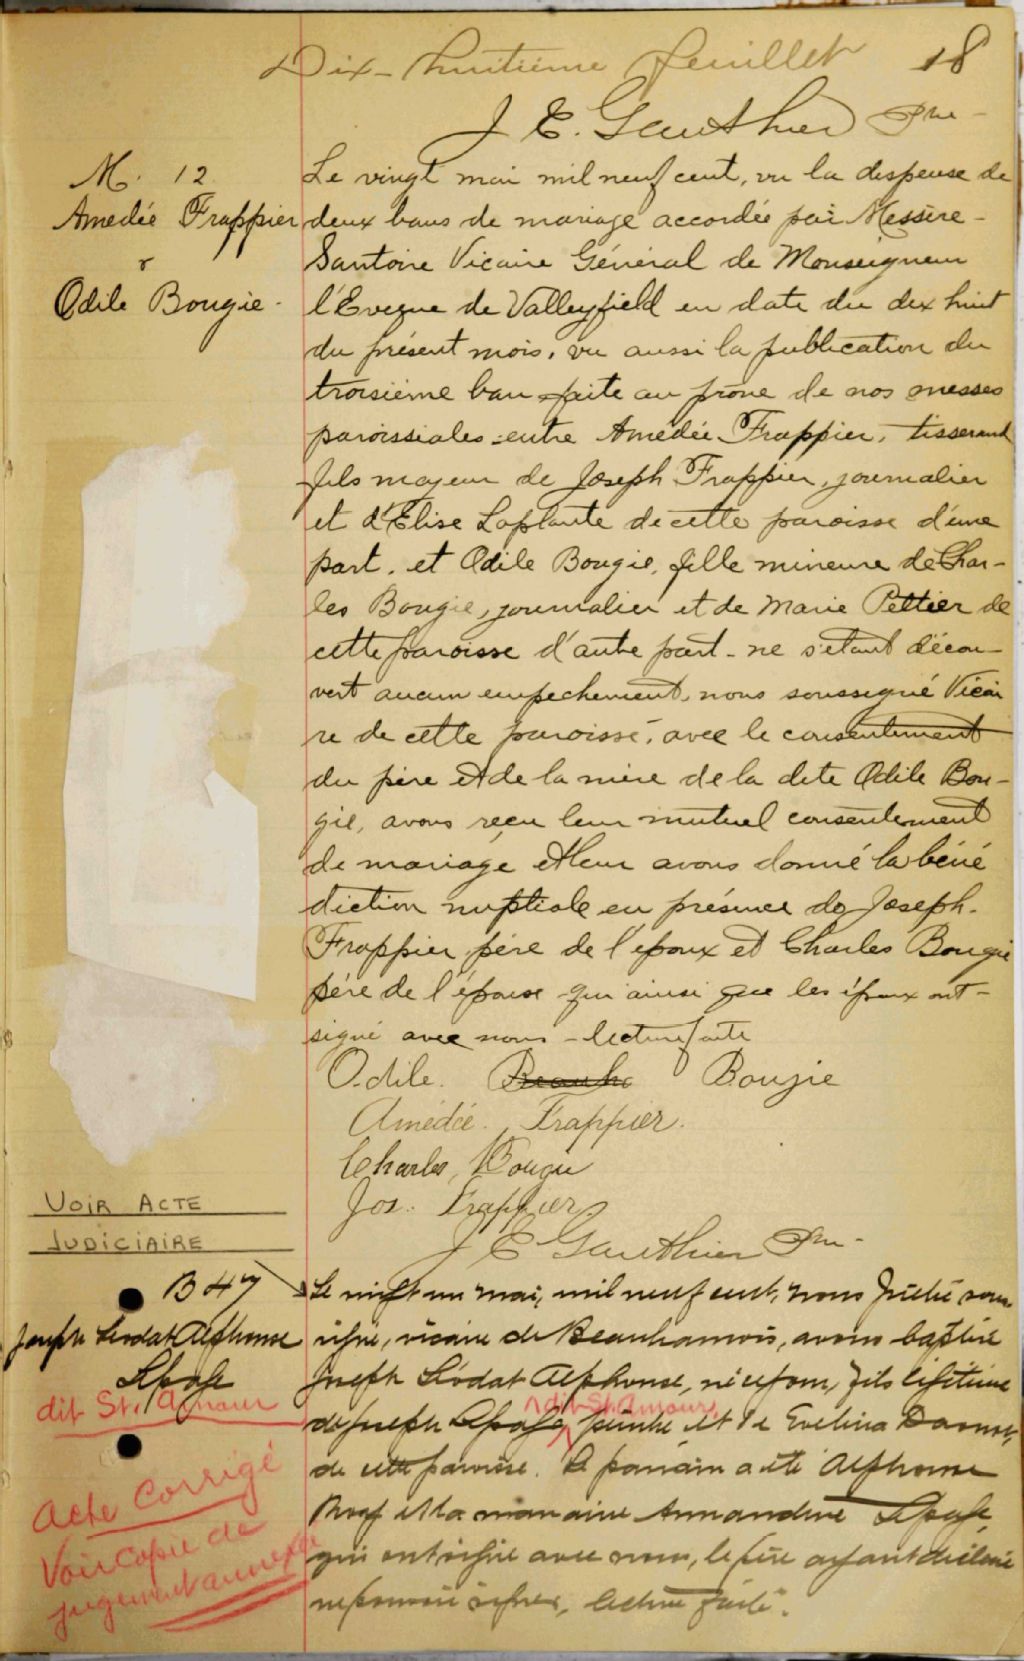 Dix-huitième feuillet 18
J. E. Gauthier Ptre
M. 12
Amedée Frappier
&
Odile Bougie.
Le vingt mai mil neuf cent, vu la dispense de
deux bans de mariage accordée par Messire
Santoire Vicaire Général de Monseigneur
l'Eveque de Valleyfield en date du dix huit
du présent mois, vu aussi la publication du
troisième ban faite au prône de nos messes
paroissiales entre Amédée Frappier, tisserand
fils majeur de Joseph Frappier, journalier
et d'Elise Laplante de cette paroisse d'une
part, et Odile Bougie, fille mineure de Char-
les Bougie, journalier et de Marie Peltier de
cette paroisse d'autre part - ne s'etant décou-
vert aucun empechement, nous soussigné Vicai
re de cette paroisse, avec le consentement
du père et de la mère de la dite Odile Bou-
gie, avons reçu leur mutuel consentement
de mariage et leur avons donné la béné
diction nuptiale en présence de Joseph
Frappier père de l'epoux et Charles Bougie
père de l'épouse qui ainsi que les époux ont
signé avec nous - lecture faite
Odile Bougie
Amédée Frappier.
Charles Bougie
Jos. Frappier
J E Gauthier Ptre
VOIR ACTE
JUDICIAIRE
B 47
Joseph Alphonse
dit St. Amour
Acte Corrigé
Voir copie de
jugement annexée
Le vingt un mai, mil neuf cent, nous Prêtre sous-
signé, vicaire de Beauharnois, avons baptisé
Joseph Alphonse, né ce jour, fils légitime
de Joseph dit St. Amour, peintre et de Evelina
de cette paroisse. Le parrain a été Alphonse
et la marraine
qui ont signé avec nous, le père ayant déclaré
ne pouvoir signer, lecture faite.